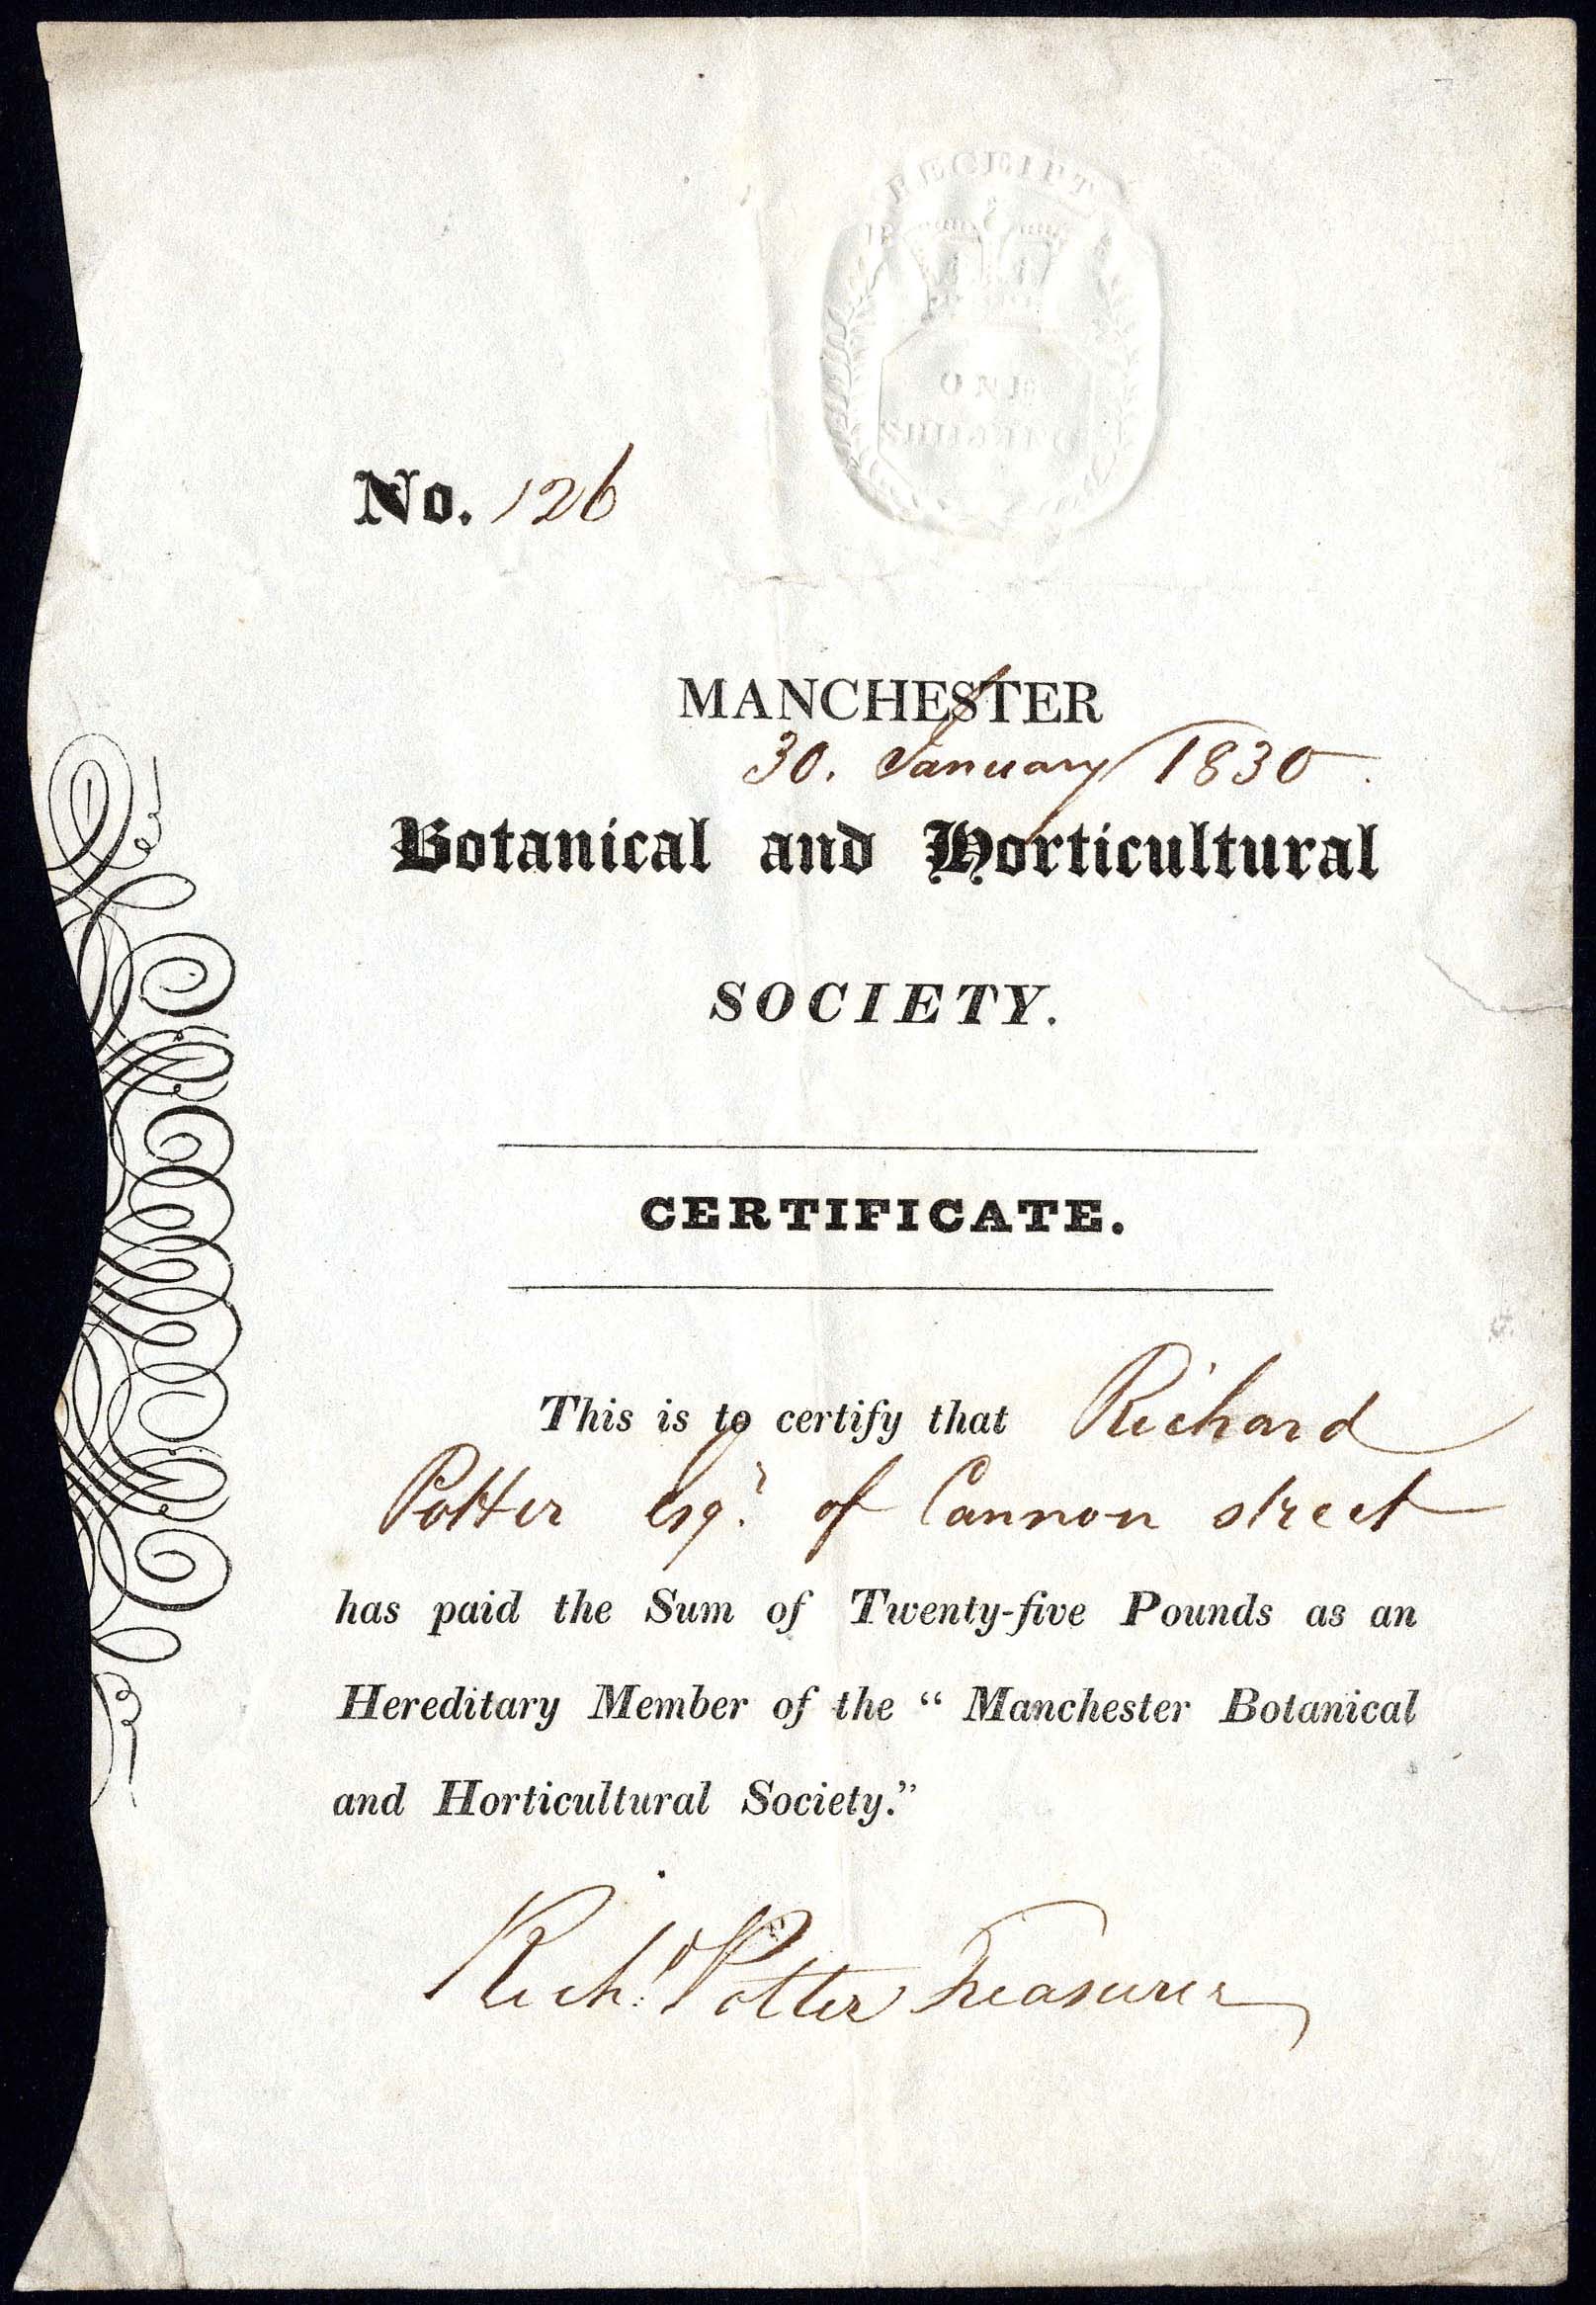 RECEIPT
ONE
SHILLING
No. 126
MANCHESTER
30. January 1830.
Botanical and Horticultural
SOCIETY.
CERTIFICATE.
This is to certify that Richard
Potter Esqr. of Cannon street
has paid the Sum of Twenty-five Pounds as an
Hereditary Member of the “ Manchester Botanical
and Horticultural Society.”
Richd. Potter Treasurer